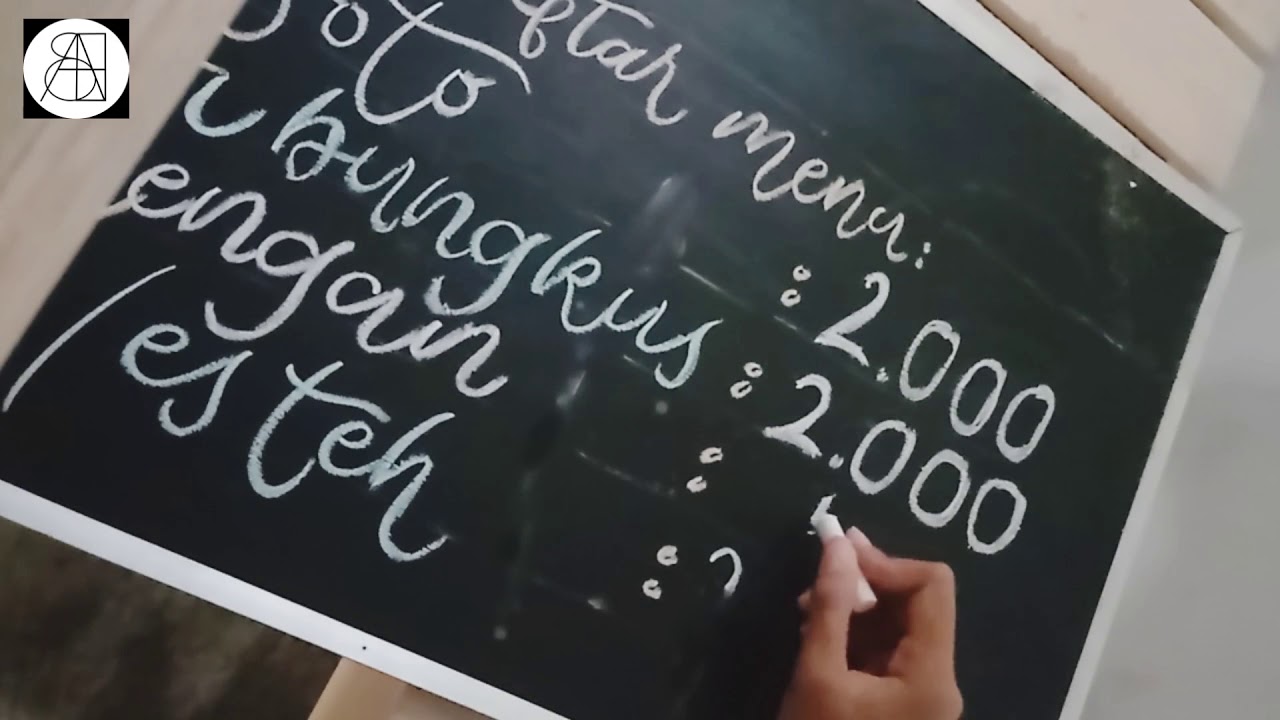 ftar menu:
oto : 2.000
bungkus : 2.000
engan :
/es teh :